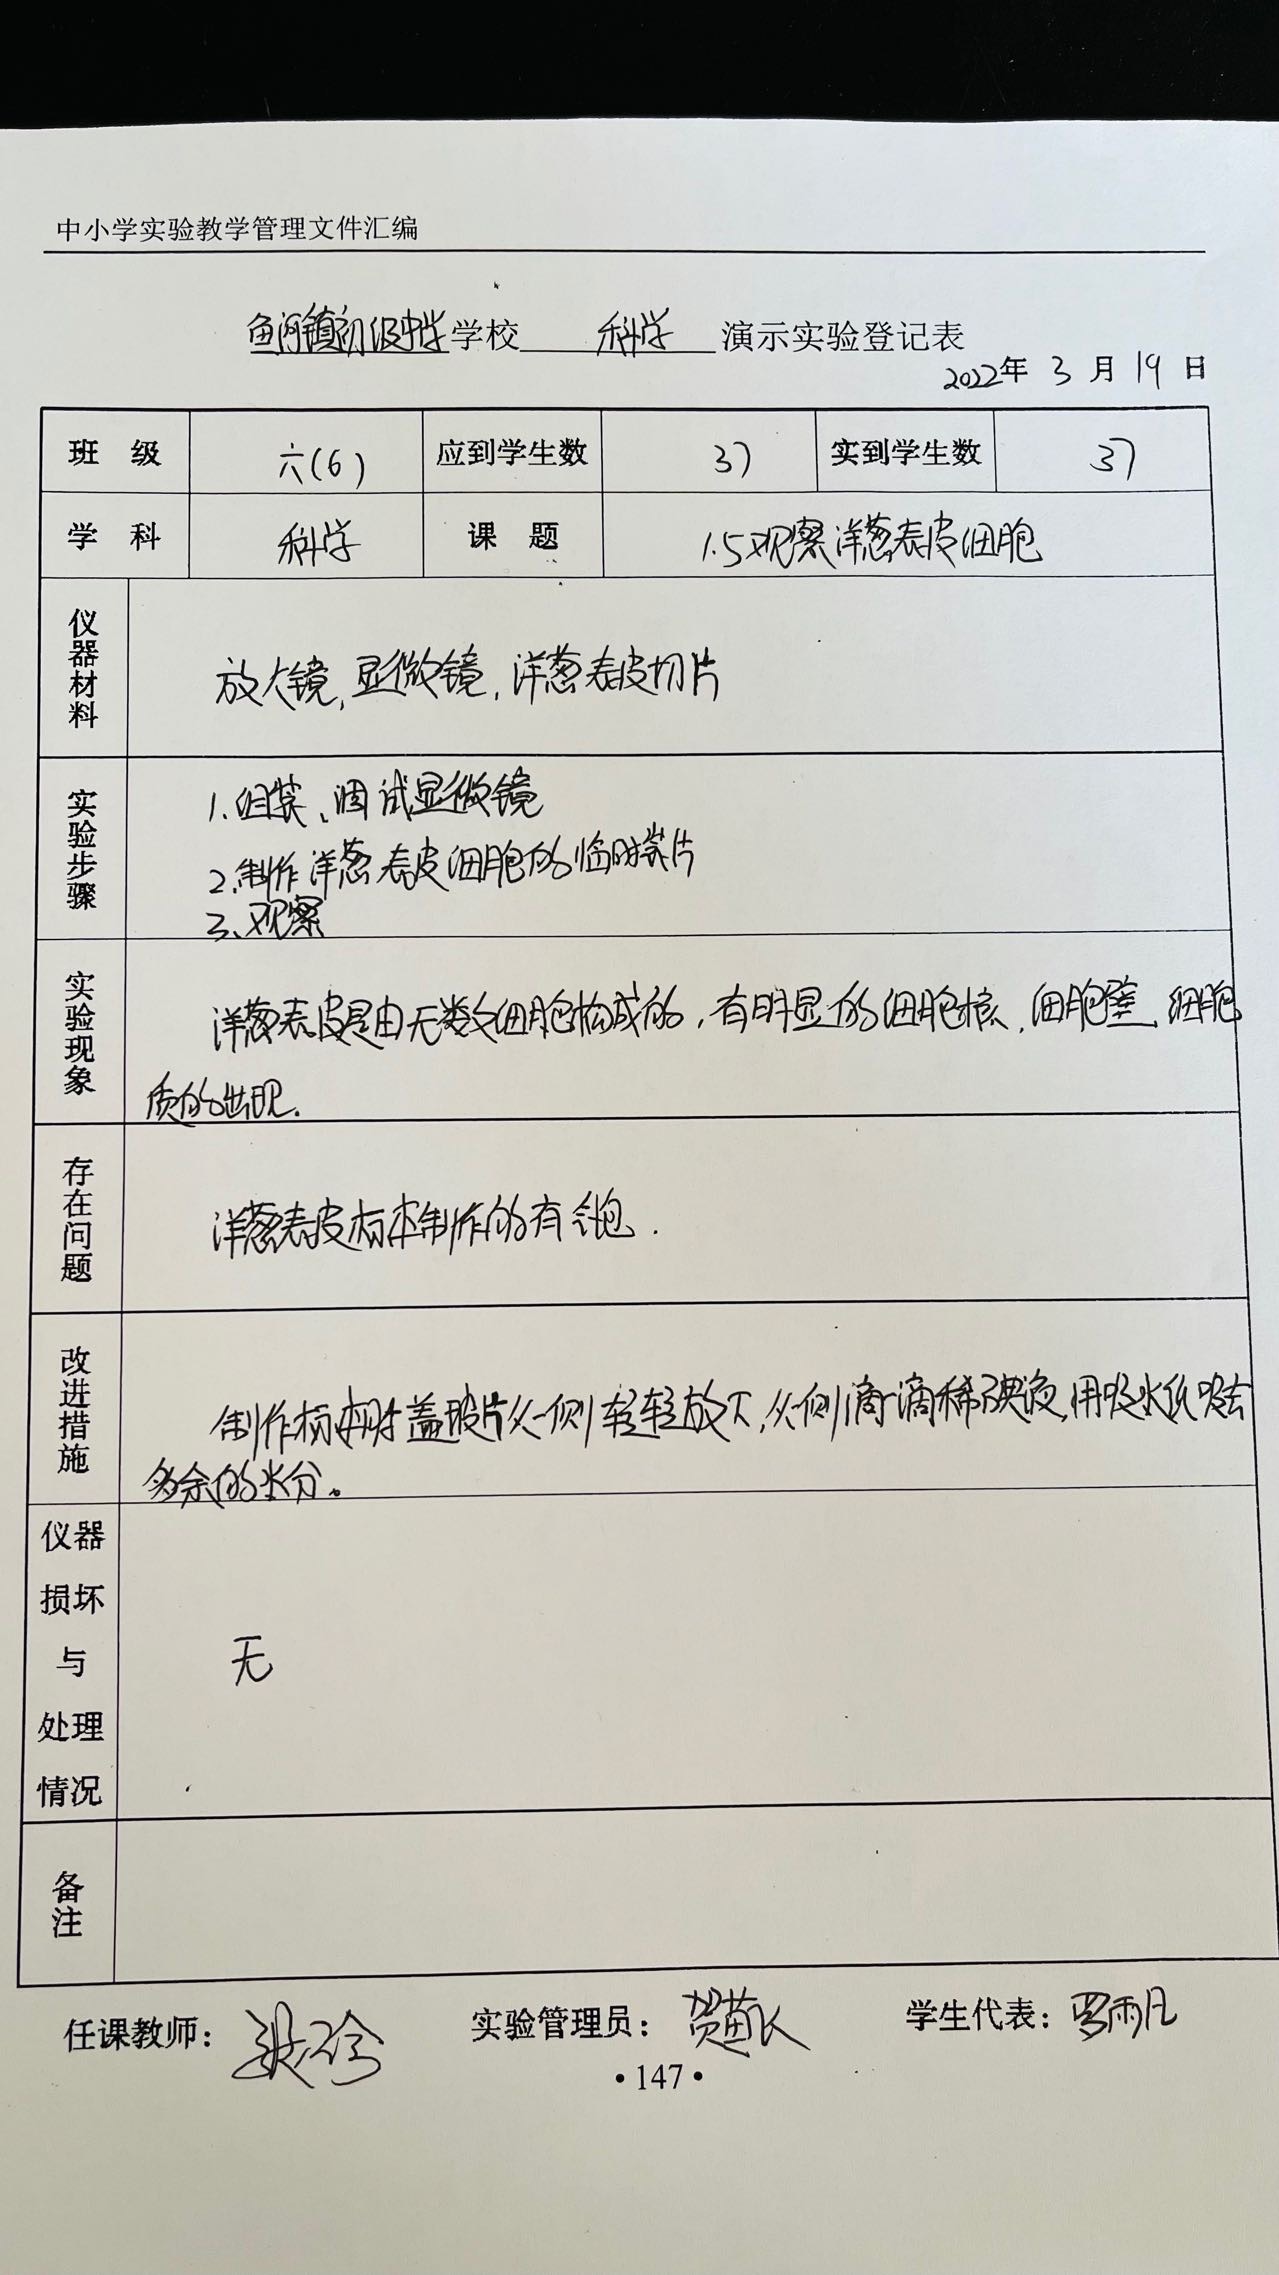 中小学实验教学管理文件汇编
鱼河镇初级中学学校 科学 演示实验登记表
2022年 3 月 19 日
班 级 六(6) 应到学生数 37 实到学生数 37
学 科 科学 课 题 1.5观察洋葱表皮细胞
仪器材料 放大镜,显微镜,洋葱表皮切片
实验步骤
1.组装、调试显微镜
2.制作洋葱表皮细胞的临时装片
3、观察
实验现象
洋葱表皮是由无数细胞构成的,有明显的细胞核、细胞壁、细胞
质的出现.
存在问题
洋葱表皮标本制作的有气泡.
改进措施
制作标本时盖玻片从一侧轻轻放下,从侧滴一滴稀碘液,用吸水纸吸去
多余的水分。
仪器
损坏
与
处理
情况
无
备注
任课教师: 实验管理员: 学生代表: 罗雨凡
•147•